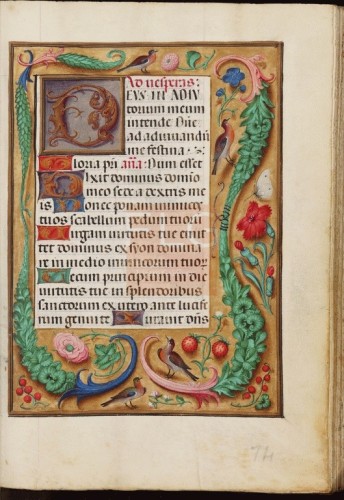 Ad vesperas:
DEUS IN ADIU
torium meum
intende Dne
ad adiuvandū
me festina
Gloria pr̄i Dum esset
Dixit dominus domino
meo sede a dextris me
is Donec ponam inimicos
tuos scabellum pedum tuorū
Virgam virtutis tue emit
tet dominus ex syon domina
re in medio inimicorum tuorū
Tecum principium in die
virtutis tue in splendoribus
sanctorum ex utero ante lucife
rum genui te Iuravit dn̄s
74